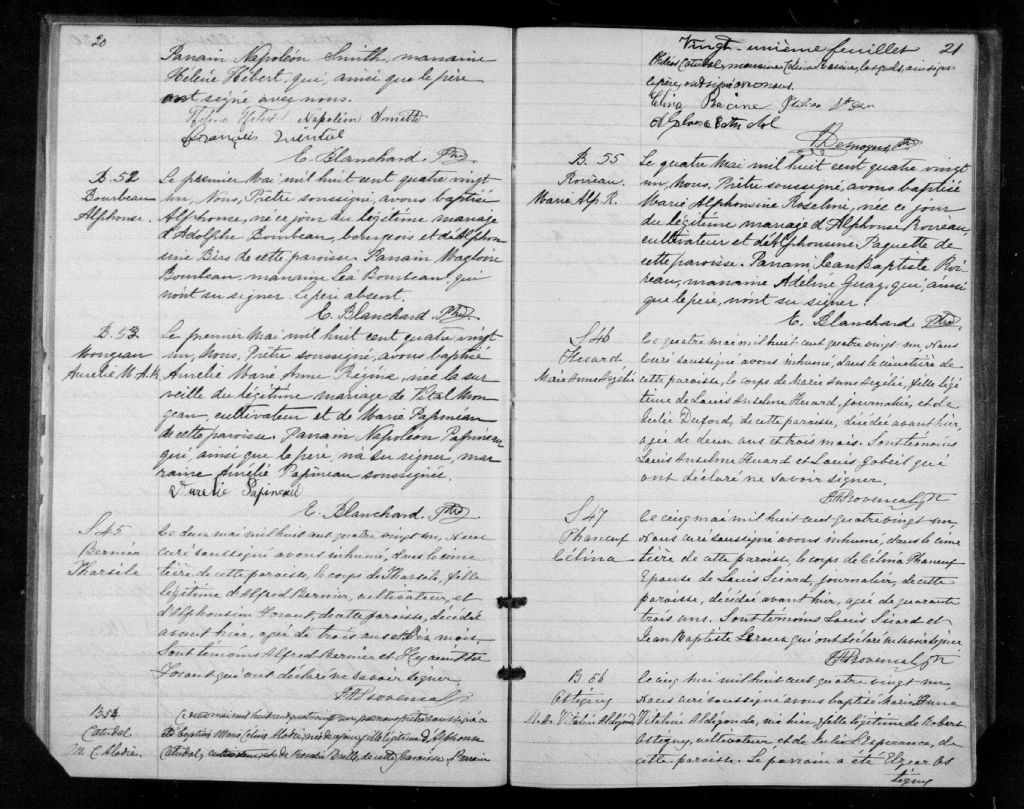 20
Parrain Napoléon Smith, marraine
Hélène Hébert, qui, ainsi que le père
ont signé avec nous.
Hélène Hebert Napoléon Smith
François
E. Blanchard. Ptre
B. 52
Bourbeau
Alphonse.
Le premier Mai mil huit cent quatre vingt
un, Nous, Prêtre soussigné, avons baptisé
Alphonse, né ce jour du légitime mariage
d'Adolphe Bourbeau, bourgeois et d'Alphon
sine Birs de cette paroisse. Parrain Magloire
Bourbeau, marraine Léa Bourbeau, qui
n'ont su signer. Le père absent.
E. Blanchard. Ptre
B. 53
Mongeau
Aurélie M. A. R.
Le premier Mai mil huit cent quatre vingt
un, Nous, Prêtre soussigné, avons baptisé
Aurélie Marie Anne Régina, née la sur
veille du légitime mariage de Vital Mon
geau, cultivateur et de Marie Papineau
de cette paroisse. Parrain Napoléon Papineau
qui, ainsi que le père, n'a su signer, mar
raine Aurélie Papineau soussignée.
Aurelie Papineau
E. Blanchard. Ptre
S 45
Bernier
Tharsile
Le deux mai mil huit cent quatre vingt un, Nous
curé soussigné avons inhumé, dans le cime
tière de cette paroisse, le corps de Tharsile, fille
légitime d'Alfred Bernier, cultivateur, et
d'Alphonsin de cette paroisse, décédée
avant hier, agée de trois ans et dix mois.
Sont témoins Alfred Bernier et Hyacinthe
qui ont déclaré ne savoir signer.
J A Provencal
B 54
Catudal
M. C. Alodia.
Ce deux mai mil huit cent quatre vingt un prêtre soussigné a
baptisé Marie Celina Alodia, née légitime d'Alphonse
Catudal, cultivateur et de Rosalie de cette paroisse. Parrain
Vingt-unième feuillet 21
Catudal, marraine Celina Racine, lesquels, ainsi que
le père, ont signé avec nous.
Celina Racine
Desnoyers ptre
B. 55
Roireau.
Marie Alp. R.
Le quatre Mai mil huit cent quatre vingt
un, Nous, Prêtre soussigné, avons baptisé
Marie Alphonsine Roselini, née ce jour
du légitime mariage d'Alphonse Roireau,
cultivateur et d'Alphonsine Paquette de
cette paroisse. Parrain Jean Baptiste Roi
reau, marraine Adéline Guay, qui, ainsi
que le père, n'ont su signer.
E. Blanchard. Ptre
S 46
Huard
Marie Anne Azélie
Ce quatre mai mil huit cent quatre vingt un, Nous
curé soussigné avons inhumé, dans le cimetière de
cette paroisse, le corps de Marie Anne Azélie, fille légi
time de Louis Anselme Huard, journalier, et de
Julie Duford, de cette paroisse, décédée avant hier,
agée de deux ans et trois mois. Sont témoins
Louis Anselme Huard et Louis Gobeil qui
ont déclaré ne savoir signer.
J A Provencal
S 47
Phaneuf
Célina
Ce cinq mai mil huit cent quatre vingt un,
Nous curé soussigné avons inhumé, dans le cime
tière de cette paroisse, le corps de Célina Phaneuf
Epouse de Louis Sicard, journalier, de cette
paroisse, décédée avant hier, agée de quarante
trois ans. Sont témoins Louis Sicard et
Jean Baptiste Leroux qui ont déclaré ne savoir signer
J A Provencal
B 56
Ostiguy
Ce cinq mai mil huit cent quatre vingt un,
Nous curé soussigné avons baptisé Marie Anne
Vitaline Aldegonde, née hier, fille légitime de Robert
Ostiguy, cultivateur et de Julie L'Esperance, de
cette paroisse. Le parrain a été Elzéar Os
tiguy